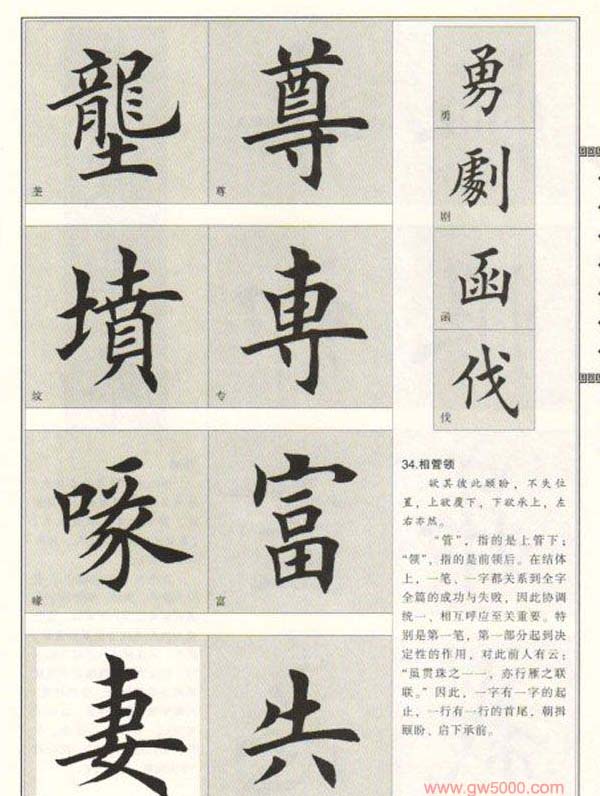 壟 尊
垄 尊
墳 専
坟 专
喙 富
喙 富
妻
勇
勇
劇
剧
函
函
伐
伐
34.相管领
欲其彼此顾盼，不失位
置，上欲覆下，下欲承上，左
右亦然。
“管”，指的是上管下；
“领”，指的是前领后。在结体
上，一笔、一字都关系到全字
全篇的成功与失败，因此协调
统一、相互呼应至关重要。特
别是第一笔，第一部分起到决
定性的作用，对此前人有云：
“虽贯珠之一一，亦行雁之联
联。”因此，一字有一字的起
止，一行有一行的首尾，朝揖
顾盼、启下承前。
www.gw5000.com